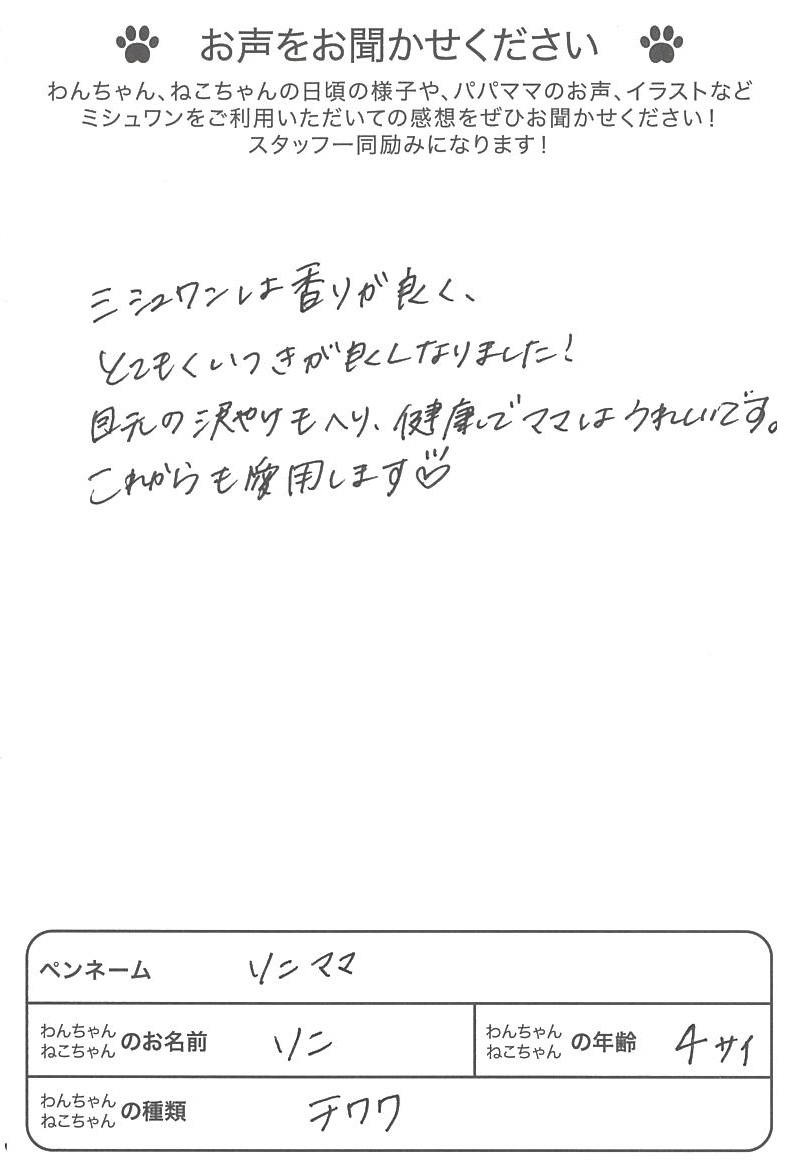 お声をお聞かせください
わんちゃん、ねこちゃんの日頃の様子や、パパママのお声、イラストなど
ミシュワンをご利用いただいての感想をぜひお聞かせください！
スタッフ一同励みになります！
ミシュワンは香りが良く、
とてもくいつきが良くなりました！
目元の涙やけもへり、健康でママはうれしいです。
これからも愛用します♡
ペンネーム リンママ
わんちゃん ねこちゃん のお名前 リン
わんちゃん ねこちゃん の年齢 4サイ
わんちゃん ねこちゃん の種類 チワワ